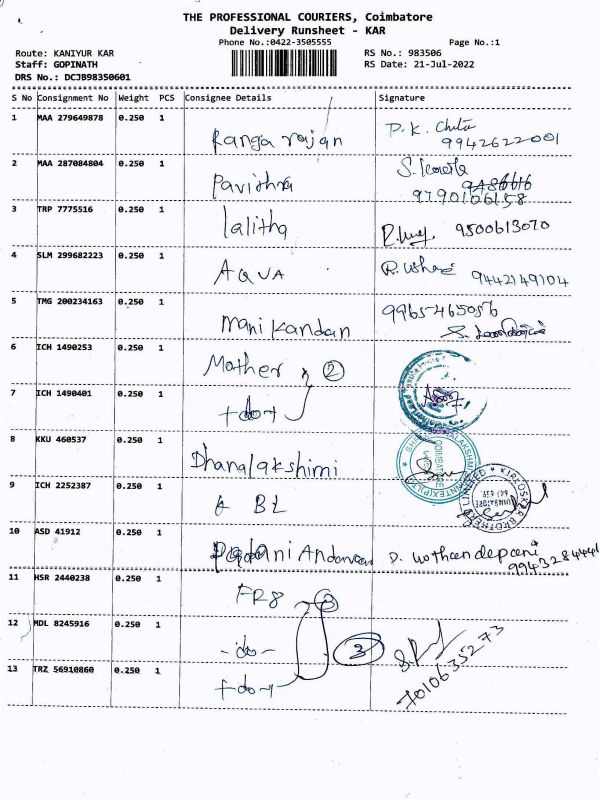 THE PROFESSIONAL COURIERS, Coimbatore
Delivery Runsheet - KAR
Phone No.:0422-3505555 Page No.:1
Route: KANIYUR KAR RS No.: 983506
Staff: GOPINATH RS Date: 21-Jul-2022
DRS No.: DCJB98350601
S No Consignment No Weight PCS Consignee Details Signature
1 MAA 279649878 0.250 1 Ranga rajan P.K. Chitra
9942622001
2 MAA 287084804 0.250 1 Pavithra
9790106158
3 TRP 7775516 0.250 1 lalitha 9500613070
4 SLM 299682223 0.250 1 AQUA R. Usha 9442149104
5 TMG 200234163 0.250 1 Mani Kandan 9965465056
6 ICH 1490253 0.250 1 Mather 2
7 ICH 1490401 0.250 1 -do-
8 KKU 460537 0.250 1 Dhanalakshimi
9 ICH 2252387 0.250 1 KBL
KIRLOSKAR BROTHERS LIMITED
COIMBATORE
10 ASD 41912 0.250 1
11 HSR 2440238 0.250 1
12 MDL 8245916 0.250 1 -do- 3
7010635273
13 TRZ 56910860 0.250 1 -do-